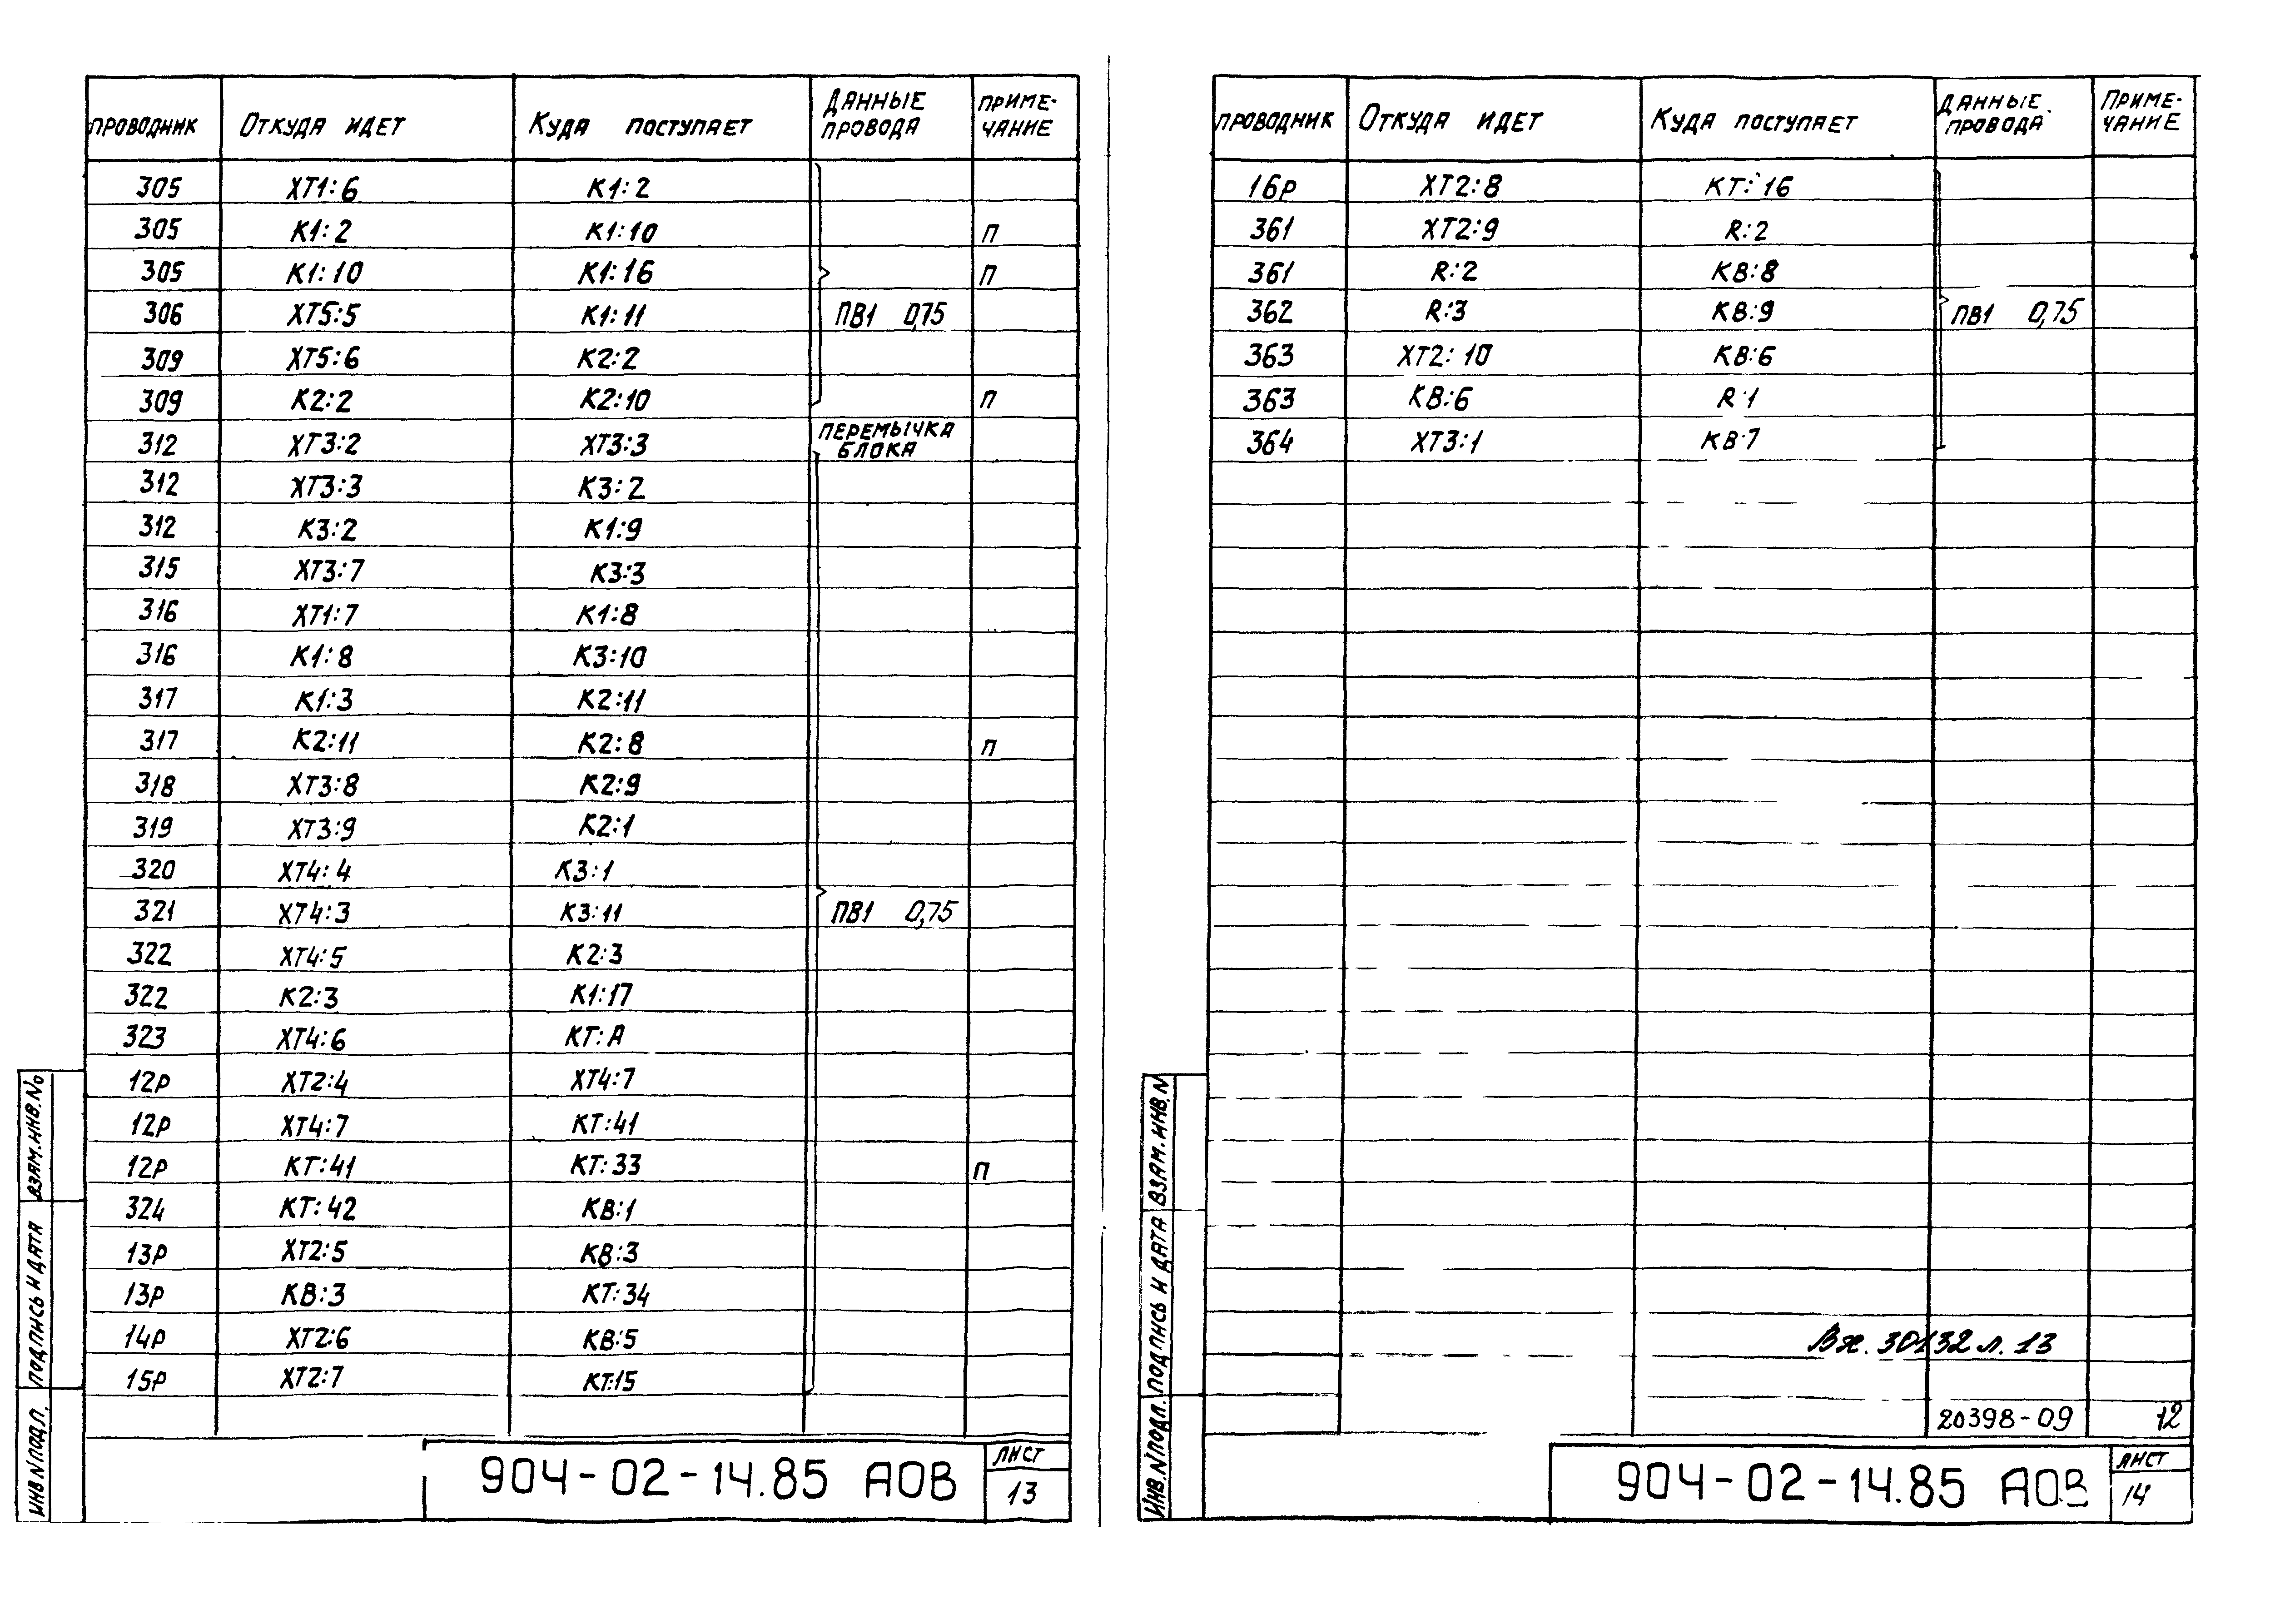 ПРОВОДНИК ОТКУДА ИДЕТ КУДА ПОСТУПАЕТ ДАННЫЕ ПРОВОДА ПРИМЕ-ЧАНИЕ
305 XT1:6 K1:2
305 K1:2 K1:10 П
305 K1:10 K1:16 П
306 XT5:5 K1:11 ПВ1 0,75
309 XT5:6 K2:2
309 K2:2 K2:10 П
312 XT3:2 XT3:3 ПЕРЕМЫЧКА БЛОКА
312 XT3:3 K3:2
312 K3:2 K1:9
315 XT3:7 K3:3
316 XT1:7 K1:8
316 K1:8 K3:10
317 K1:3 K2:11
317 K2:11 K2:8 П
318 XT3:8 K2:9
319 XT3:9 K2:1
320 XT4:4 K3:1
321 XT4:3 K3:11 ПВ1 0,75
322 XT4:5 K2:3
322 K2:3 K1:17
323 XT4:6 KT:A
12P XT2:4 XT4:7
12P XT4:7 KT:41
12P KT:41 KT:33 П
324 KT:42 KB:1
13P XT2:5 KB:3
13P KB:3 KT:34
14P XT2:6 KB:5
15P XT2:7 KT:15
ВЗАМ.ИНВ.№
ПОДПИСЬ И ДАТА
ИНВ.№ПОДЛ.
904-02-14.85 АОВ
ЛИСТ
13
ПРОВОДНИК ОТКУДА ИДЕТ КУДА ПОСТУПАЕТ ДАННЫЕ ПРОВОДА ПРИМЕ-ЧАНИЕ
16P XT2:8 KT:16
361 XT2:9 R:2
361 R:2 KB:8
362 R:3 KB:9 ПВ1 0,75
363 XT2:10 KB:6
363 KB:6 R:1
364 XT3:1 KB:7
Вх. 30132 л. 13
20398-09 12
ВЗАМ.ИНВ.N
ПОДПИСЬ И ДАТА
ИНВ.NПОДЛ.
904-02-14.85 АОВ
ЛИСТ
14